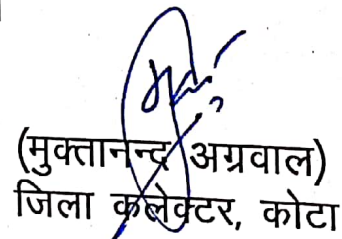 (मुक्तानन्द अग्रवाल)
जिला कलेक्टर, कोटा